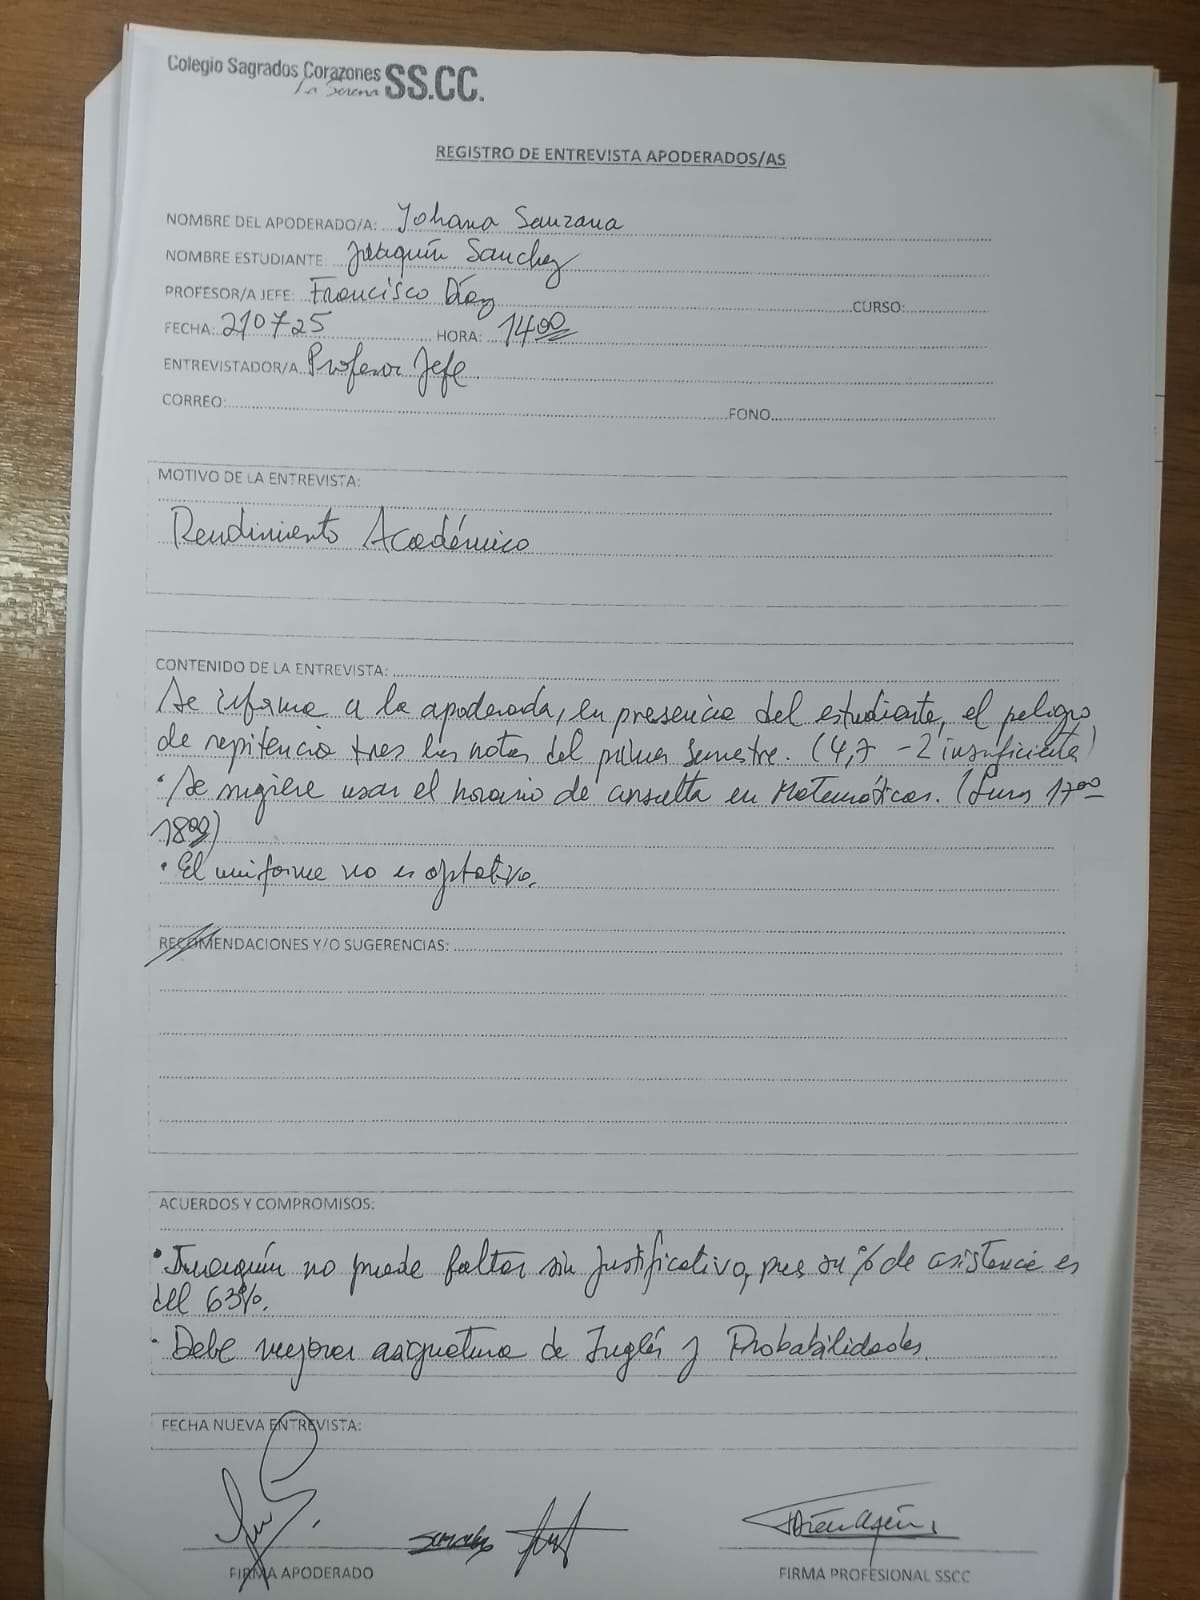 Colegio Sagrados Corazones SS.CC.
La Serena
REGISTRO DE ENTREVISTA APODERADOS/AS
NOMBRE DEL APODERADO/A: Yohana Sanzana
NOMBRE ESTUDIANTE: Joaquín Sanchez
PROFESOR/A JEFE: Francisco Díaz CURSO:
FECHA: 210725 HORA: 1400
ENTREVISTADOR/A. Profesor Jefe.
CORREO: FONO
MOTIVO DE LA ENTREVISTA:
Rendimiento Académico
CONTENIDO DE LA ENTREVISTA:
Se informa a la apoderada, en presencia del estudiante, el peligro
de repitencia tras las notas del primer semestre. (4,7 - 2 insuficiente)
• Se sugiere usar el horario de consulta en Matemáticas. (Lunes 1700
1800)
• El uniforme no es optativo.
RECOMENDACIONES Y/O SUGERENCIAS:
ACUERDOS Y COMPROMISOS:
• Joaquín no puede faltar sin justificativo, pues su % de asistencia es
del 63%.
• Debe mejorar asignatura de Inglés y Probabilidades.
FECHA NUEVA ENTREVISTA:
FIRMA APODERADO FIRMA PROFESIONAL SSCC